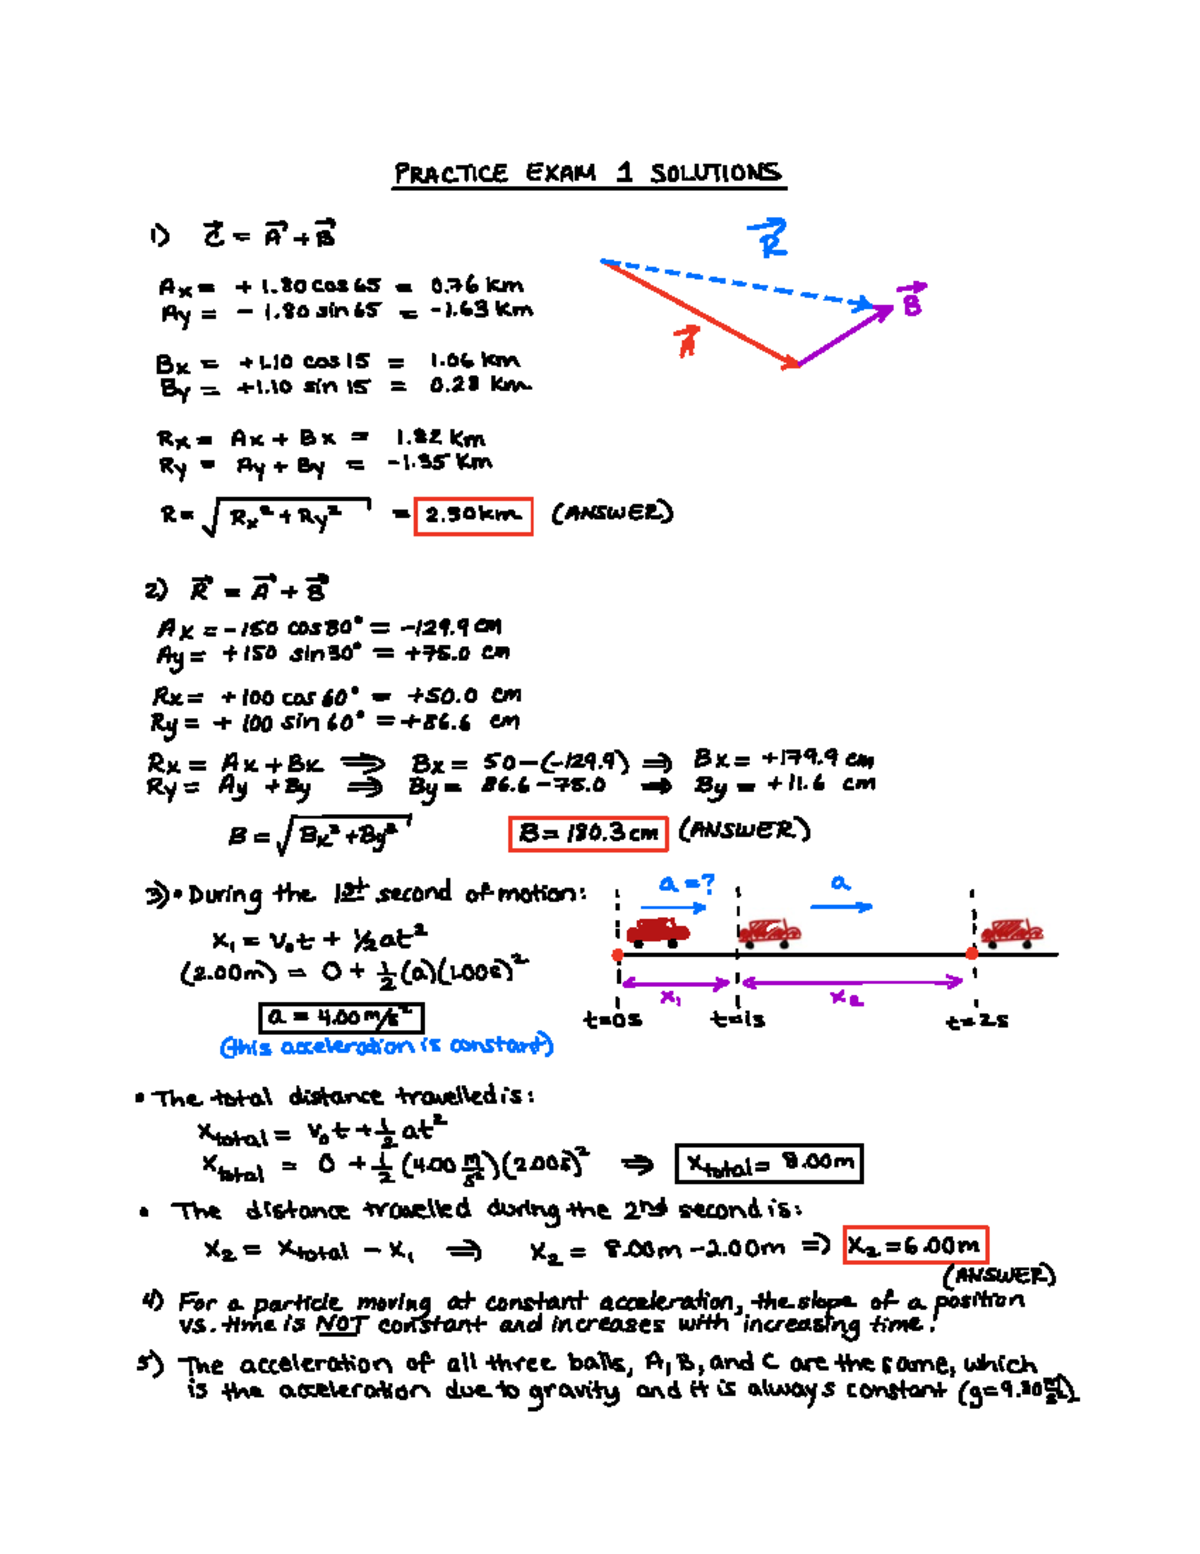 PRACTICE EXAM 1 SOLUTIONS
1) C⃗ = A⃗ + B⃗
R⃗
B⃗
A⃗
Ax = + 1.80 cos 65 = 0.76 km
Ay = - 1.80 sin 65 = -1.63 km
Bx = +1.10 cos 15 = 1.06 km
By = +1.10 sin 15 = 0.28 km
Rx = Ax + Bx = 1.82 km
Ry = Ay + By = -1.35 km
R = √(Rx² + Ry²) = 2.30 km (ANSWER)
2) R⃗ = A⃗ + B⃗
Ax = -150 cos 30° = -129.9 cm
Ay = +150 sin 30° = +75.0 cm
Rx = +100 cos 60° = +50.0 cm
Ry = + 100 sin 60° = +86.6 cm
Rx = Ax + Bx ⇒ Bx = 50-(-129.9) ⇒ Bx = +179.9 cm
Ry = Ay + By ⇒ By = 86.6-75.0 ⇒ By = +11.6 cm
B = √(Bx² + By²) B = 180.3 cm (ANSWER)
3) • During the 1st second of motion:
a = ? a
x₁ = v₀t + ½at²
(2.00m) = 0 + ½(a)(1.00s)²
x₁ x₂
a = 4.00 m/s²
t=0s t=1s t=2s
(this acceleration is constant)
• The total distance travelled is:
xtotal = v₀t + ½at²
xtotal = 0 + ½(4.00 m/s²)(2.00s)² ⇒ xtotal = 8.00m
• The distance travelled during the 2nd second is:
x₂ = xtotal - x₁ ⇒ x₂ = 8.00m - 2.00m ⇒ x₂ = 6.00m
(ANSWER)
4) For a particle moving at constant acceleration, the slope of a position
vs. time is NOT constant and increases with increasing time.
5) The acceleration of all three balls, A, B, and C are the same, which
is the acceleration due to gravity and it is always constant (g=9.80 m/s²).